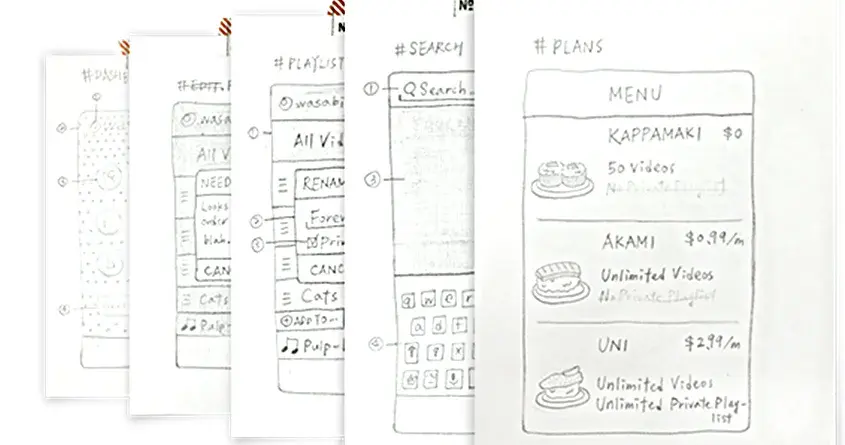 #DASHB
All V
#EDIT P
wasa
All V
NEED
Looks
order
blah.
CAN
Cats
Pulp-
#PLAYLIST
wasabi
All Vid
RENAM
Forev
Pri
CANC
Cats
ADD TO
Pulp-
No
#SEARCH
① Search
③
q w e r
a d f
z x
No
#PLANS
MENU
KAPPAMAKI $0
50 Videos
No Private Playlist
AKAMI $0.99/m
Unlimited Videos
No Private Playlist
UNI $2.99/m
Unlimited Videos
Unlimited Private Play-
list